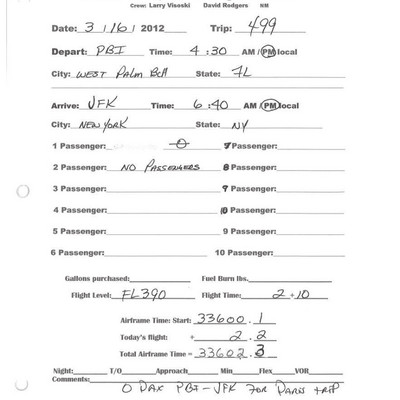 Crew: Larry Visoski David Rodgers NM
Date: 3 / 16 / 2012 Trip: 499
Depart: PBI Time: 4 :30 AM / PM local
City: WEST PALM BCH State: FL
Arrive: JFK Time: 6 :40 AM / PM local
City: NEW YORK State: NY
1 Passenger: 0 7 Passenger:
2 Passenger: NO PASSENGERS 8 Passenger:
3 Passenger: 9 Passenger:
4 Passenger: 10 Passenger:
5 Passenger: 9 Passenger:
6 Passenger: 10 Passenger:
Gallons purchased: Fuel Burn lbs.
Flight Level: FL390 Flight Time: 2 +10
Airframe Time: Start: 33600.1
Today's flight: + 2.2
Total Airframe Time = 33602.3
Night: T/O Approach Min Flex VOR
Comments: 0 PAX PBI - JFK FOR PARIS TRIP